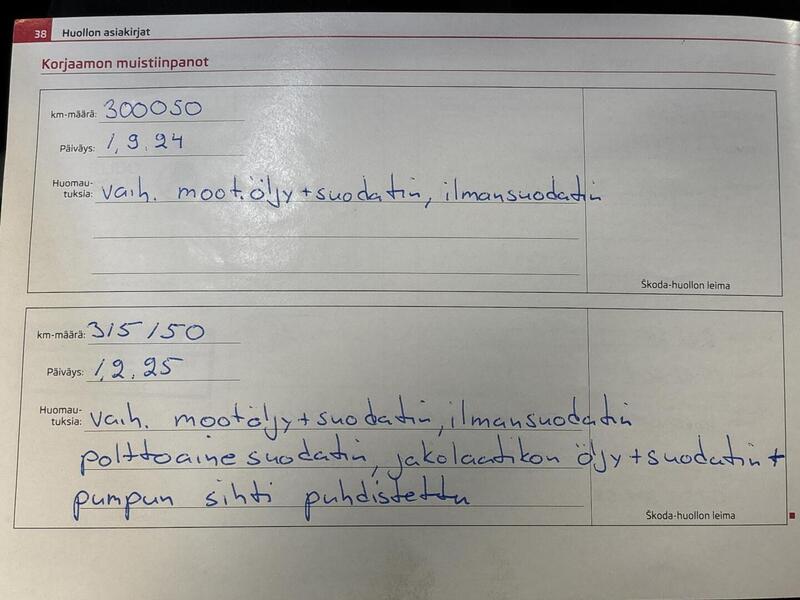 38 Huollon asiakirjat
Korjaamon muistiinpanot
km-määrä: 300050
Päiväys: 1.9.24
Huomau-
tuksia: vaih. moot.öljy+suodatin, ilmansuodatin
Škoda-huollon leima
km-määrä: 315150
Päiväys: 1.2.25
Huomau-
tuksia: vaih. mootöljy+suodatin, ilmansuodatin
polttoainesuodatin, jakolaatikon öljy+suodatin+
pumpun sihti puhdistettu
Škoda-huollon leima